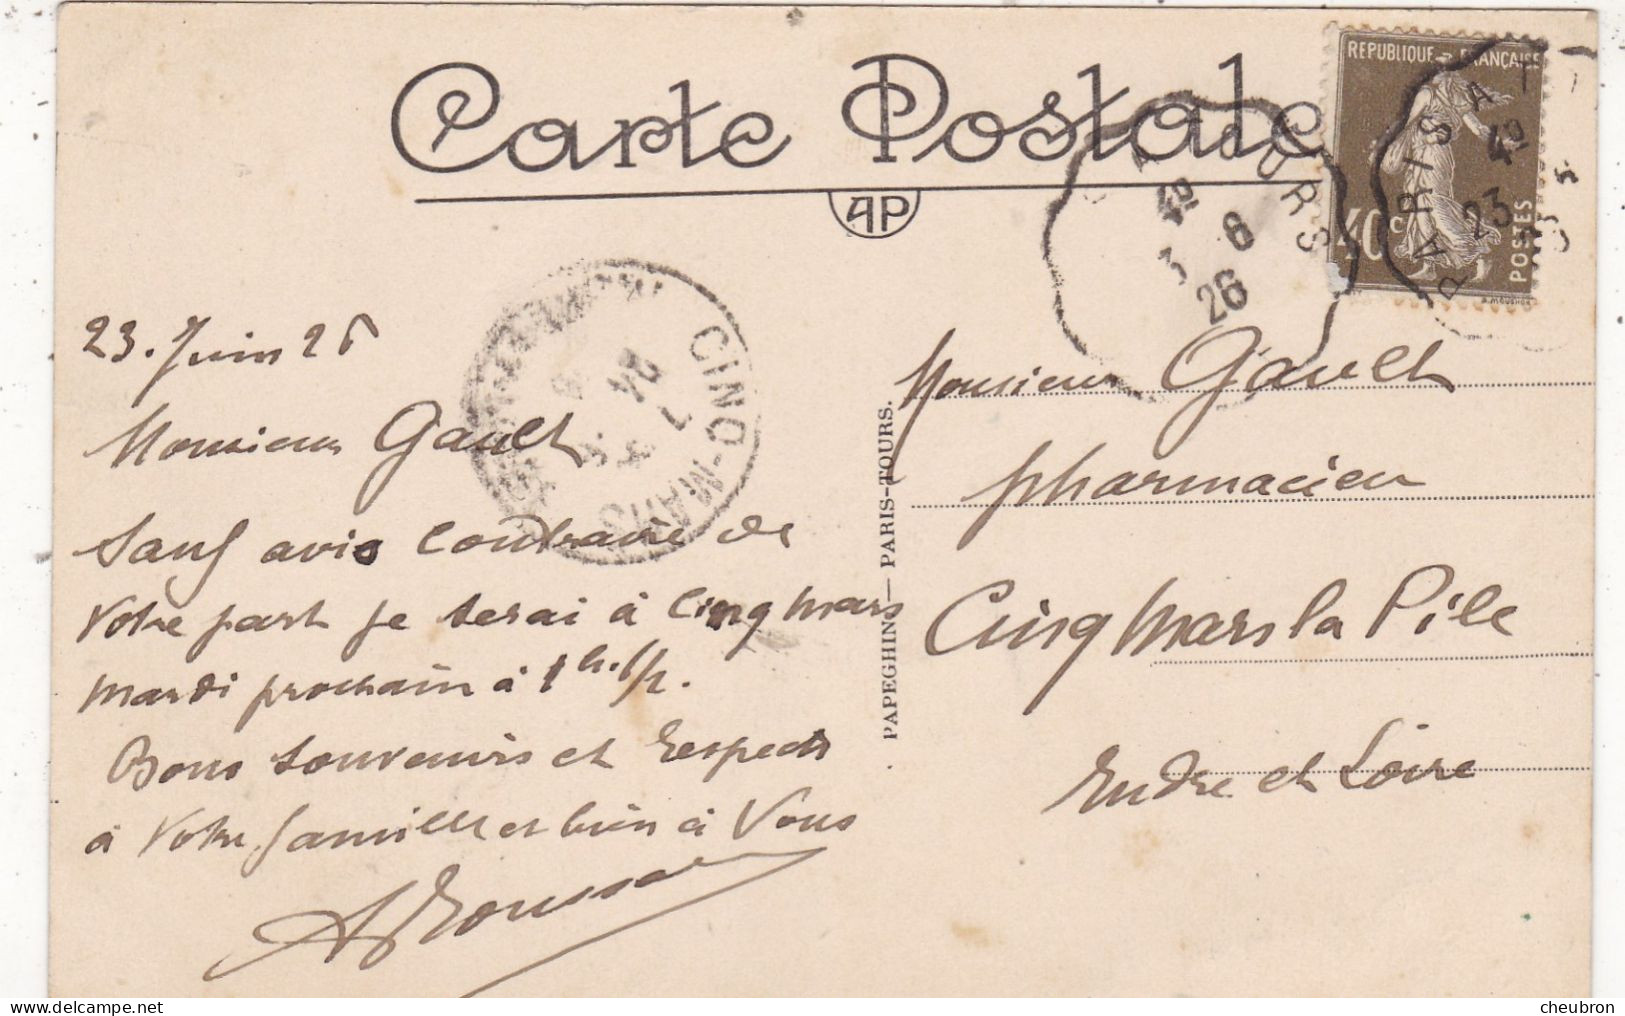 Carte Postale
AP
REPUBLIQUE FRANÇAISE
40c
POSTES
PARIS A
4º
23
TOURS
4º
6
26
CINQ-MARS
24
23. Juin 26
Monsieur Gault
Sauf avis contraire de
votre part je serai à Cinq Mars
mardi prochain à 1h. 1/2.
Bons souvenirs et respects
à votre famille et bien à vous
A Rousseau
PAPEGHIN — PARIS-TOURS.
Monsieur Gault
pharmacien
Cinq Mars la Pile
Indre et Loire
cheubron